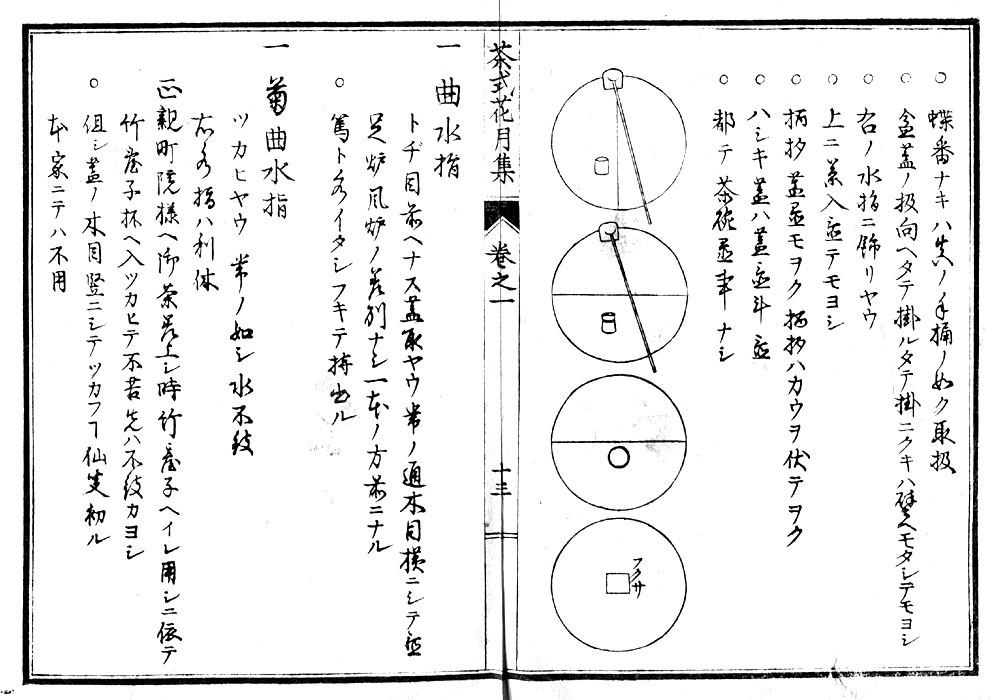 ○ 蝶番ナキハ先ノ手桶ノ如ク取扱
○ 盆蓋ノ扱向ヘタテ掛ルタテ掛ニクキハ壁ヘモタシテモヨシ
○ 右ノ水指ニ飾リヤウ
○ 上ニ茶入置テモヨシ
○ 柄杓蓋置モヲク柄杓ハカウヲ伏テヲク
○ ハシキ蓋ハ蓋置斗置
○ 都テ茶碗置事ナシ
フクサ
茶式花月集
巻之一
十三
一 曲水指
トヂ目前ヘナス蓋取ヤウ常ノ通木目横ニシテ置
足炉風炉ノ差別ナシ一本ノ方前ニナル
○ 篤ト水イタシフキテ持出ル
一 菊曲水指
ツカヒヤウ常ノ如シ水不紋
右水指ハ利休
正親町院様ヘ御茶差上シ時竹台子ヘイレ用シニ依テ
竹台子杯ヘ入ツカヒテ不苦先ハ不紋カヨシ
○ 但シ蓋ノ木目竪ニシテツカフヿ仙叟初ル
本家ニテハ不用